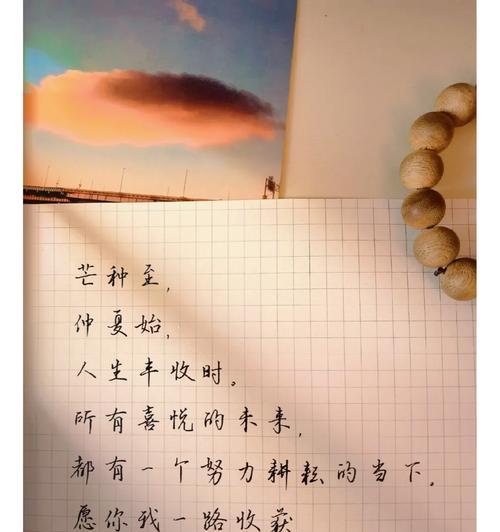 芒种至，
仲夏始，
人生丰收时。
所有喜悦的未来，
都有一个努力耕耘的当下。
愿你我一路收获